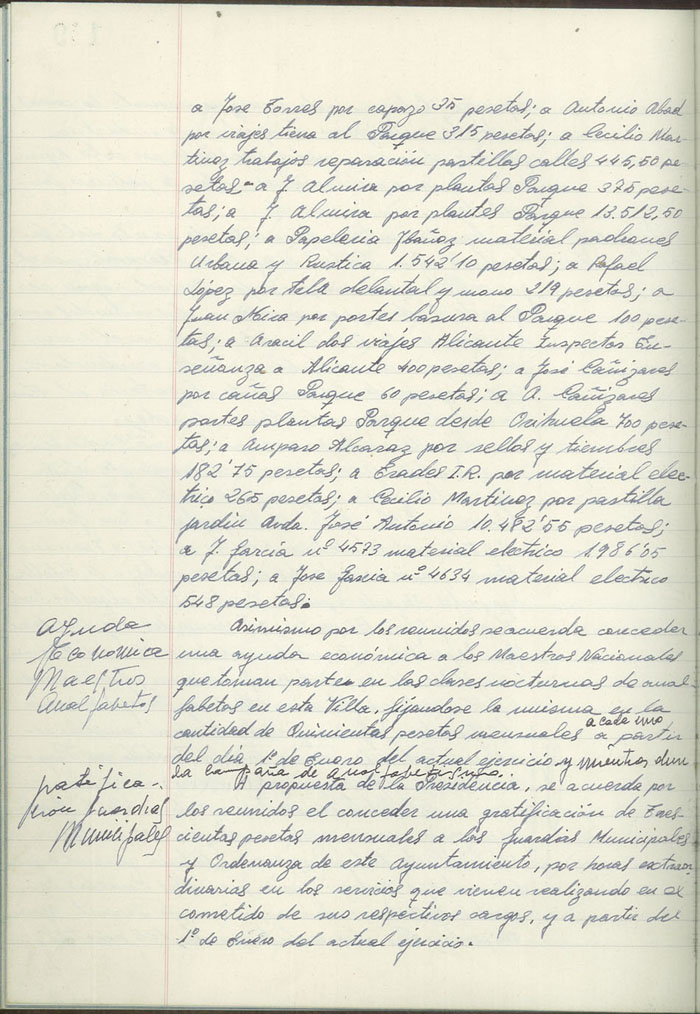 a Jose Torres por capazo 35 pesetas; a Antonio Abad
por viajes tierra al Parque 315 pesetas; a Cecilio Mar-
tinez trabajos reparación pastillas calles 445,50 pe-
setas- a J. Almira por plantas Parque 375 pese-
tas; a J. Almira por plantes Parque 13.512,50
pesetas; a Papeleria Ibañez material padrones
Urbana y Rustica 1.542'10 pesetas; a Rafael
López por tela delantal y mono 219 pesetas; a
Juan Mira por portes basura al Parque 100 pese-
tas; a Aracil dos viajes Alicante Inspector En-
señanza a Alicante 400 pesetas; a José Cañizares
por cañas Parque 60 pesetas; a A. Cañizares
portes plantas Parque desde Orihuela 700 pese-
tas; a Amparo Alcaraz por sellos y timbres
182'75 pesetas; a Erades I.R. por material elec-
trico 265 pesetas; a Cecilio Martinez por pastilla
jardin Avda. José Antonio 10.482'55 pesetas;
a J. Garcia nº 4573 material electrico 1.986'05
pesetas; a Jose Garcia nº 4634 material electrico
548 pesetas.
Ayuda
Economica
Maestros
Analfabetos
Asimismo por los reunidos se acuerda conceder
una ayuda económica a los Maestros Nacionales
que toman parte en las clases nocturnas de anal-
fabetos en esta Villa, fijandose la misma en la
cantidad de Quinientas pesetas mensuales a cada uno, a partir
del día 1º de Enero del actual ejercicio y mientras dure
la campaña de analfabetismo.
gratifica-
ción Guardias
Municipales
A propuesta de la Presidencia, se acuerda por
los reunidos el conceder una gratificación de Tres-
cientas pesetas mensuales a los Guardias Municipales
y Ordenanza de este Ayuntamiento, por horas extraor-
dinarias en los servicios que vienen realizando en el
cometido de sus respectivos cargos, y a partir del
1º de Enero del actual ejercicio.